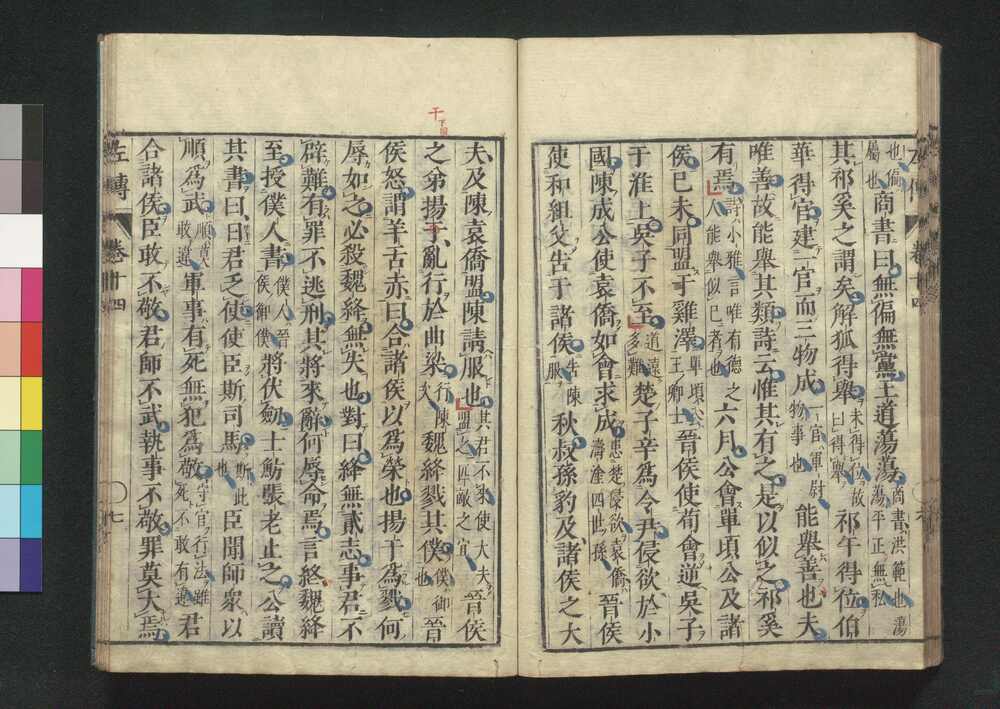 左傳 卷十四 六
也偏屬也商書曰無偏無黨王道蕩蕩商書洪範也蕩蕩平正無私
其祁奚之謂矣解狐得舉未得位故曰得舉祁午得位伯
華得官建一官而三物成一官軍尉物事也能舉善也夫
唯善故能舉其類詩云惟其有之是以似之祁奚
有焉詩小雅言唯有德之人能舉似已者也六月公會單頃公及諸
侯己未同盟于雞澤單頃公王卿士晉侯使荀會逆吳子
于淮上吳子不至道遠多難楚子辛為令尹侵欲於小
國陳成公使袁僑如會求成患楚侵欲袁僑濤塗四世孫晉侯
使和組父告于諸侯告陳服秋叔孫豹及諸侯之大
夫及陳袁僑盟陳請服也其君不來使大夫盟之匹敵之宜晉侯
干下同
之弟揚干亂行於曲梁行陳次魏絳戮其僕僕御也晉
侯怒謂羊舌赤曰合諸侯以為榮也揚干為戮何
辱如之必殺魏絳無失也對曰絳無貳志事君不
辟難有罪不逃刑其將來辭何辱命焉言終魏絳
至授僕人書僕人晉侯御僕將伏劍士魴張老止之公讀
其書曰日君乏使使臣斯司馬斯此也臣聞師衆以
順為武順莫敢違軍事有死無犯為敬守官行法雖死不敢有違君
合諸侯臣敢不敬君師不武執事不敬罪莫大焉
左傳 卷十四 七